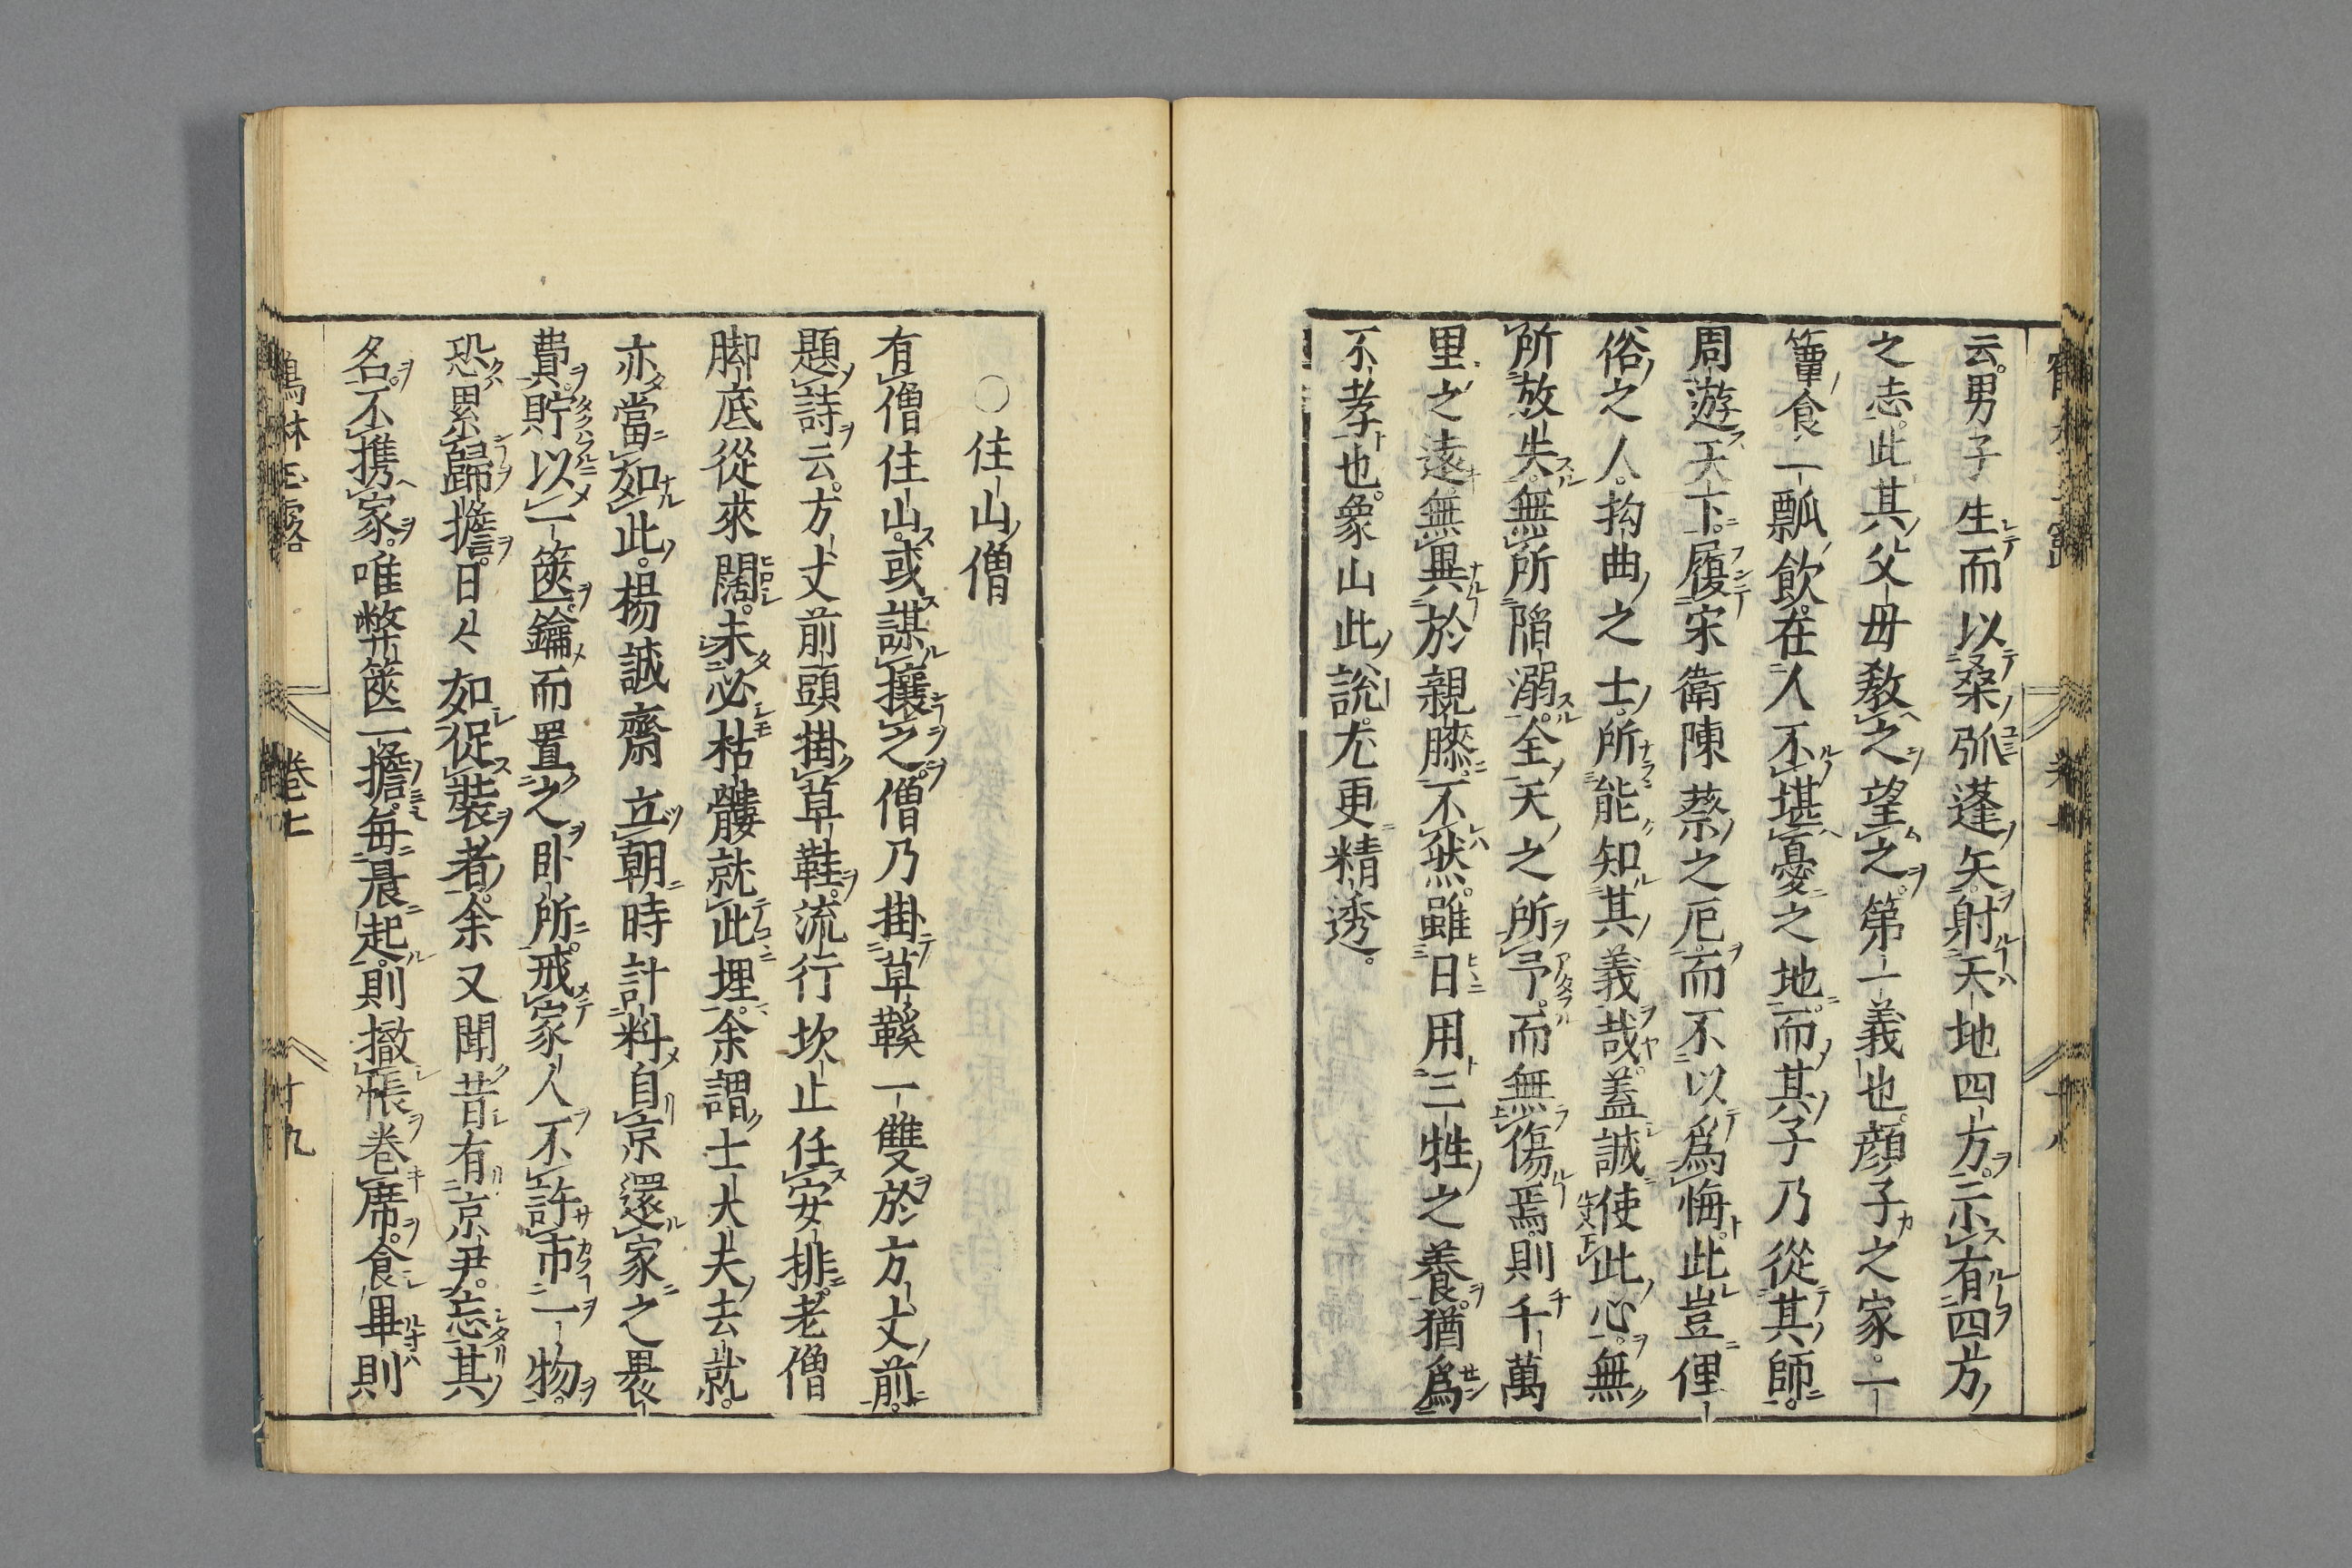 云男子生而以桑弧蓬矢射天地四方示有四方
之志此其父母教之望之第一義也顔子之家一
簞食一瓢飲在人不堪憂之地而其子乃從其師
周遊天下履宋衛陳蔡之厄而不以爲悔此豈俚
俗之人拘曲之士所能知其義哉蓋誠使此心無
所放失無所陷溺全天之所予而無傷焉則千萬
里之遠無異於親膝不然雖日用三牲之養猶爲
不孝也象山此說尤更精透
○住山僧
有僧住山或謀攘之僧乃掛草鞵一雙於方丈前
題詩云方丈前頭掛草鞋流行坎止任安排老僧
脚底從來闊未必枯髏就此埋余謂士大夫去就
亦當如此楊誠齋立朝時計料自京還家之裹
費貯以一篋鑰而置之臥所戒家人不許市一物
恐累歸擔日〻如促裝者余又聞昔有京尹忘其
名不携家唯弊篋一擔每晨起則撤帳卷席食畢則
鶴林玉露 卷七 十九